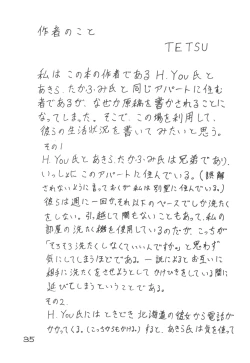 作者のこと
TETSU
私はこの本の作者であるH.You氏と
あきら.たかふみ氏と同じアパートに住む
者であるが、なぜか原稿を書かされることに
なってしまった。そこで、この場を利用して、
彼らの生活状況を書いてみたいと思う。
その1
H.You氏とあきら.たかふみ氏は兄弟であり、
いっしょにこのアパートに住んでいる。(誤解
されないように言っておくが私は別室に住んでいる。)
彼らは週に一回か、それ以下のペースでしか洗たく
をしない。引っ越して間もないこともあって、私の
部屋の洗たく機を使用しているのだが、こっちが
「そろそろ洗たくしなくていいんですか。」と思わず
気にしてしまうほどである。一説によるとお互いに
相手に洗たくをさせようとしてかけひきをしている間に
延びてしまうということである。
その2.
H.You氏にはときどき北海道の彼女から電話が
かかってくる。(こっちからもかける。)すると、あきら氏は気を使って
35